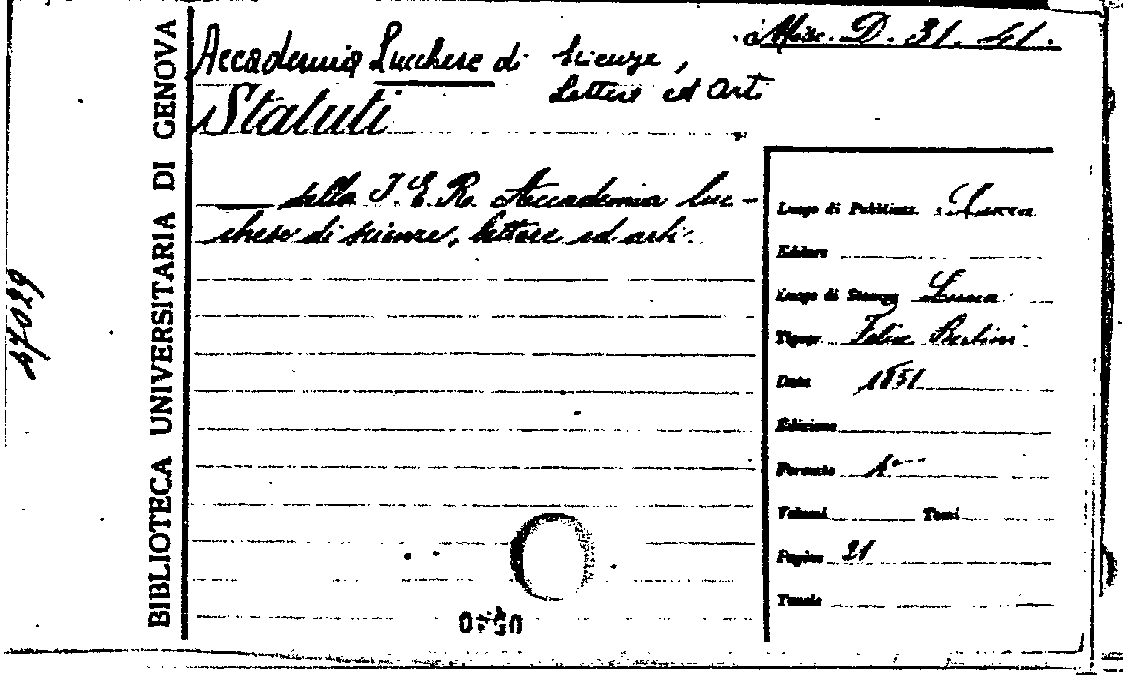 Misc. D. 31. 41.
Accademia Lucchese di Scienze,
Lettere ed Arti
Statuti
della I. E. R. Accademia luc-
chese di scienze, lettere ed arti.
BIBLIOTECA UNIVERSITARIA DI GENOVA
Luogo di Pubblicaz. Lucca
Editore
Luogo di Stampa Lucca
Tipogr. Felice Bertini
Data 1851
Edizione
Formato
Volumi Tomi
Pagine 21
Tavole